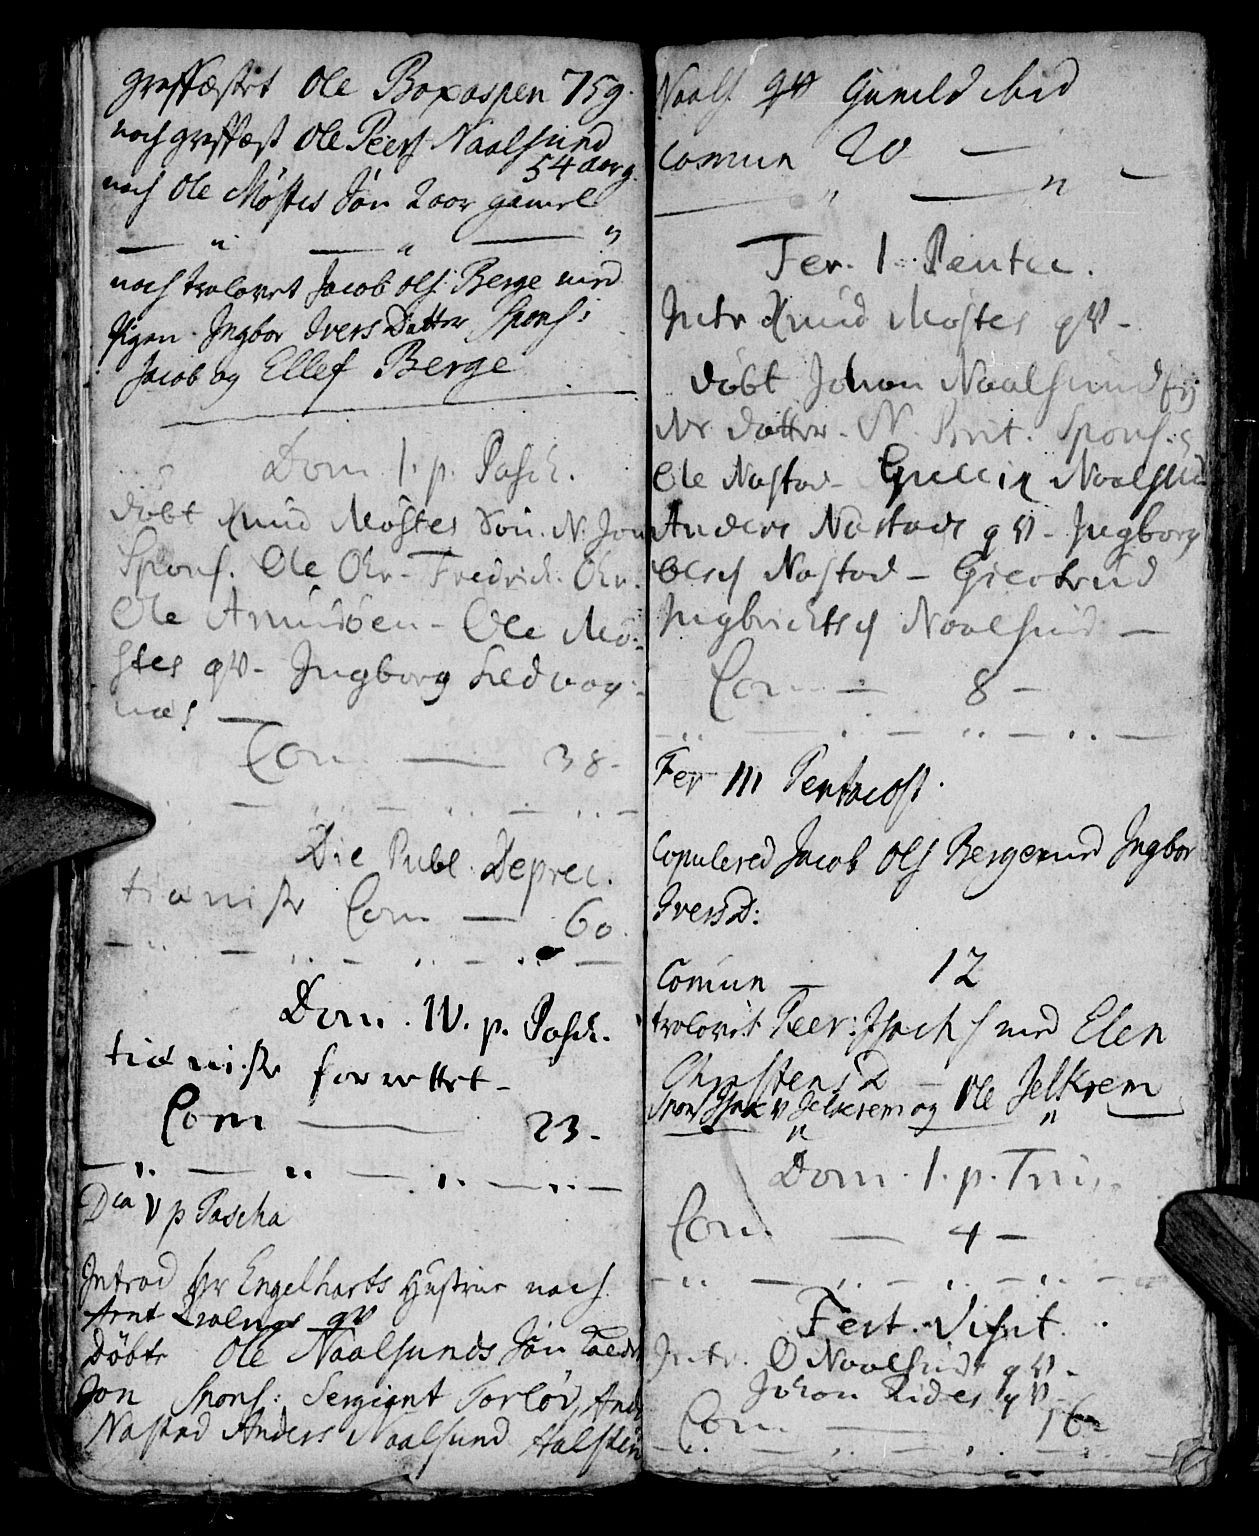 graffæstet Ole Boxaspen 75 g.
noch graffæst Ole Peers Naalsund
54 aar g.
noch Ole Møstes Søn 2 aar gamel
noch trolovet Jacob Ols: Berge med
Pigen Ingbor Ivers Datter Spons:
Jacob og Ellef Berge
Dom 1. p. Pasch.
døbt Knud Møstes Søn. N. Jon
Spons. Ole Chr- Fredrich. Chr.
Ole Amundsen - Ole Mø-
stes qv- Ingborg
næs
Com — 38-
Die Publ. Deprec.
tieniste Com — 60.
Dom. IV. p. Pasch.
tieniste forrettet-
Com — 23.-
Dca V p Pascha
Introd Hr Engelharts Hustrue noch
Arnt qv
døbte Ole Naalsunds Søn
Jon Spons: Sergient Torlov, And
Nastad Anders Naalsund Halsten
Naals qv Gunild ibid
Comun 20 —
Fer. 1. Pentec.
Intr Knud Møstes qv-
døbt Johan Naalsund
datter- N. Brit. Spons.
Ole Nastad- Naalsund
Anders Nastads qv- Ingborg
Olesd Nastad - Giertrud
Ingbrichtsd Naalsund —
Com — 8 -
Fer III Pentacost.
Copulered Jacob Ols Berge med Ingbor
IversD:
Comun — 12
trolovet Peer: Isachs med Elen
ChristensD — Ole Jelkrem
Spons Isak Jelkrem og
Dom. 1. p. Trin.
Com. — 4 -
Fest. Visit.
Intr. O Naalsunds qv-
Johan qv-
Com — 16-